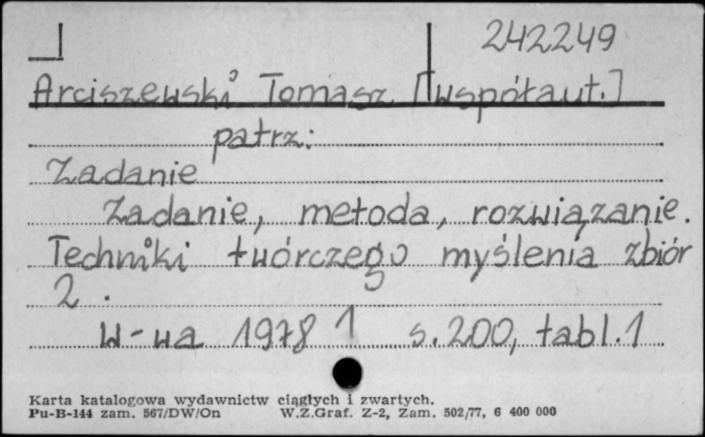 242249
Arciszewski Tomasz [współaut.]
patrz:
Zadanie
Zadanie, metoda, rozwiązanie.
Techniki twórczego myślenia zbiór
2.
W-wa 1978 1 s. 200, tabl. 1
Karta katalogowa wydawnictw ciągłych i zwartych.
Pu-B-144 zam. 567/DW/On W.Z.Graf. Z-2, Zam. 502/77, 6 400 000